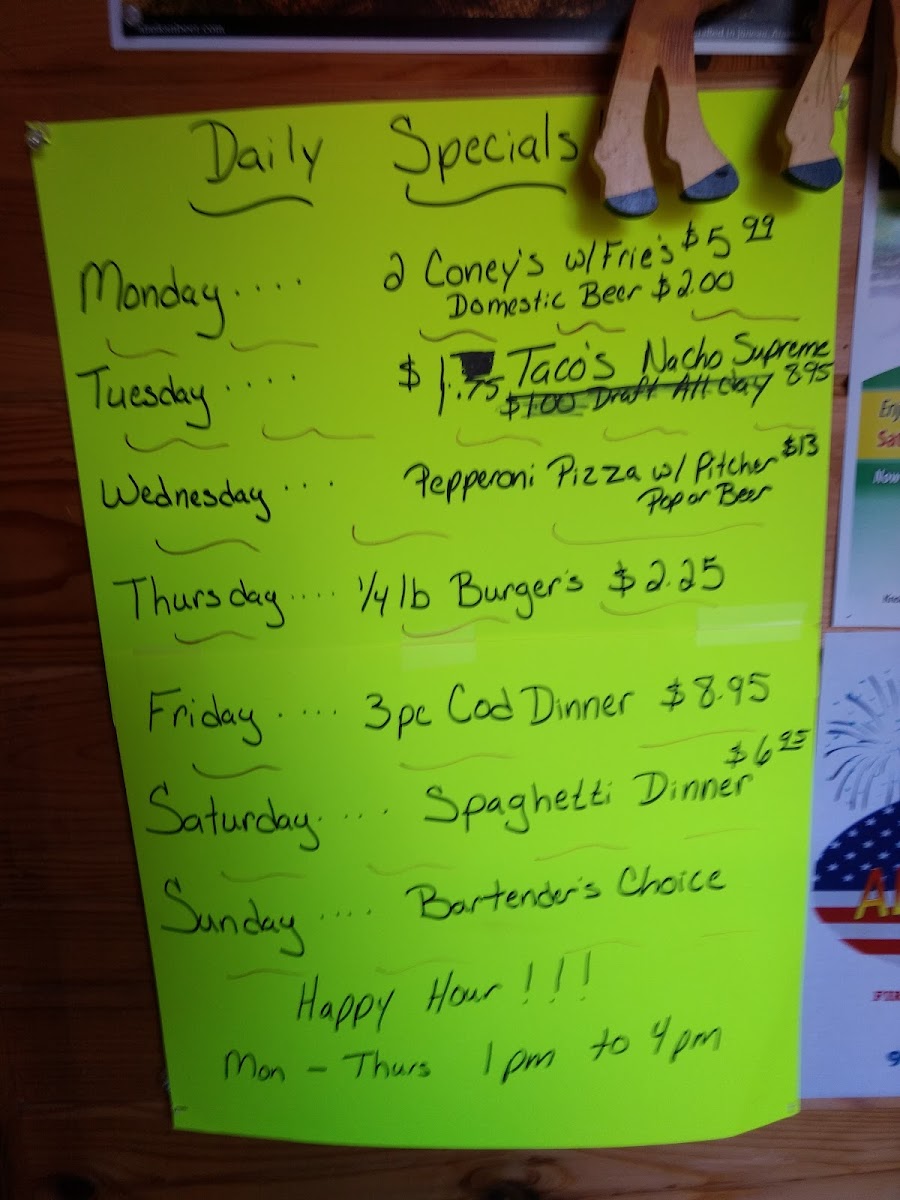 Daily Specials
Monday.... 2 Coney's w/Frie's $5 99
Domestic Beer $2.00
Tuesday.... $1.75 Taco's Nacho Supreme
$1.00 Draft All day 895
Wednesday... Pepperoni Pizza w/ Pitcher $13
Pop or Beer
Thursday.... 1/4 lb Burger's $2.25
Friday..... 3pc Cod Dinner $8.95
$6 95
Saturday.... Spaghetti Dinner
Sunday.... Bartender's Choice
Happy Hour !!!
Mon - Thurs 1pm to 4pm